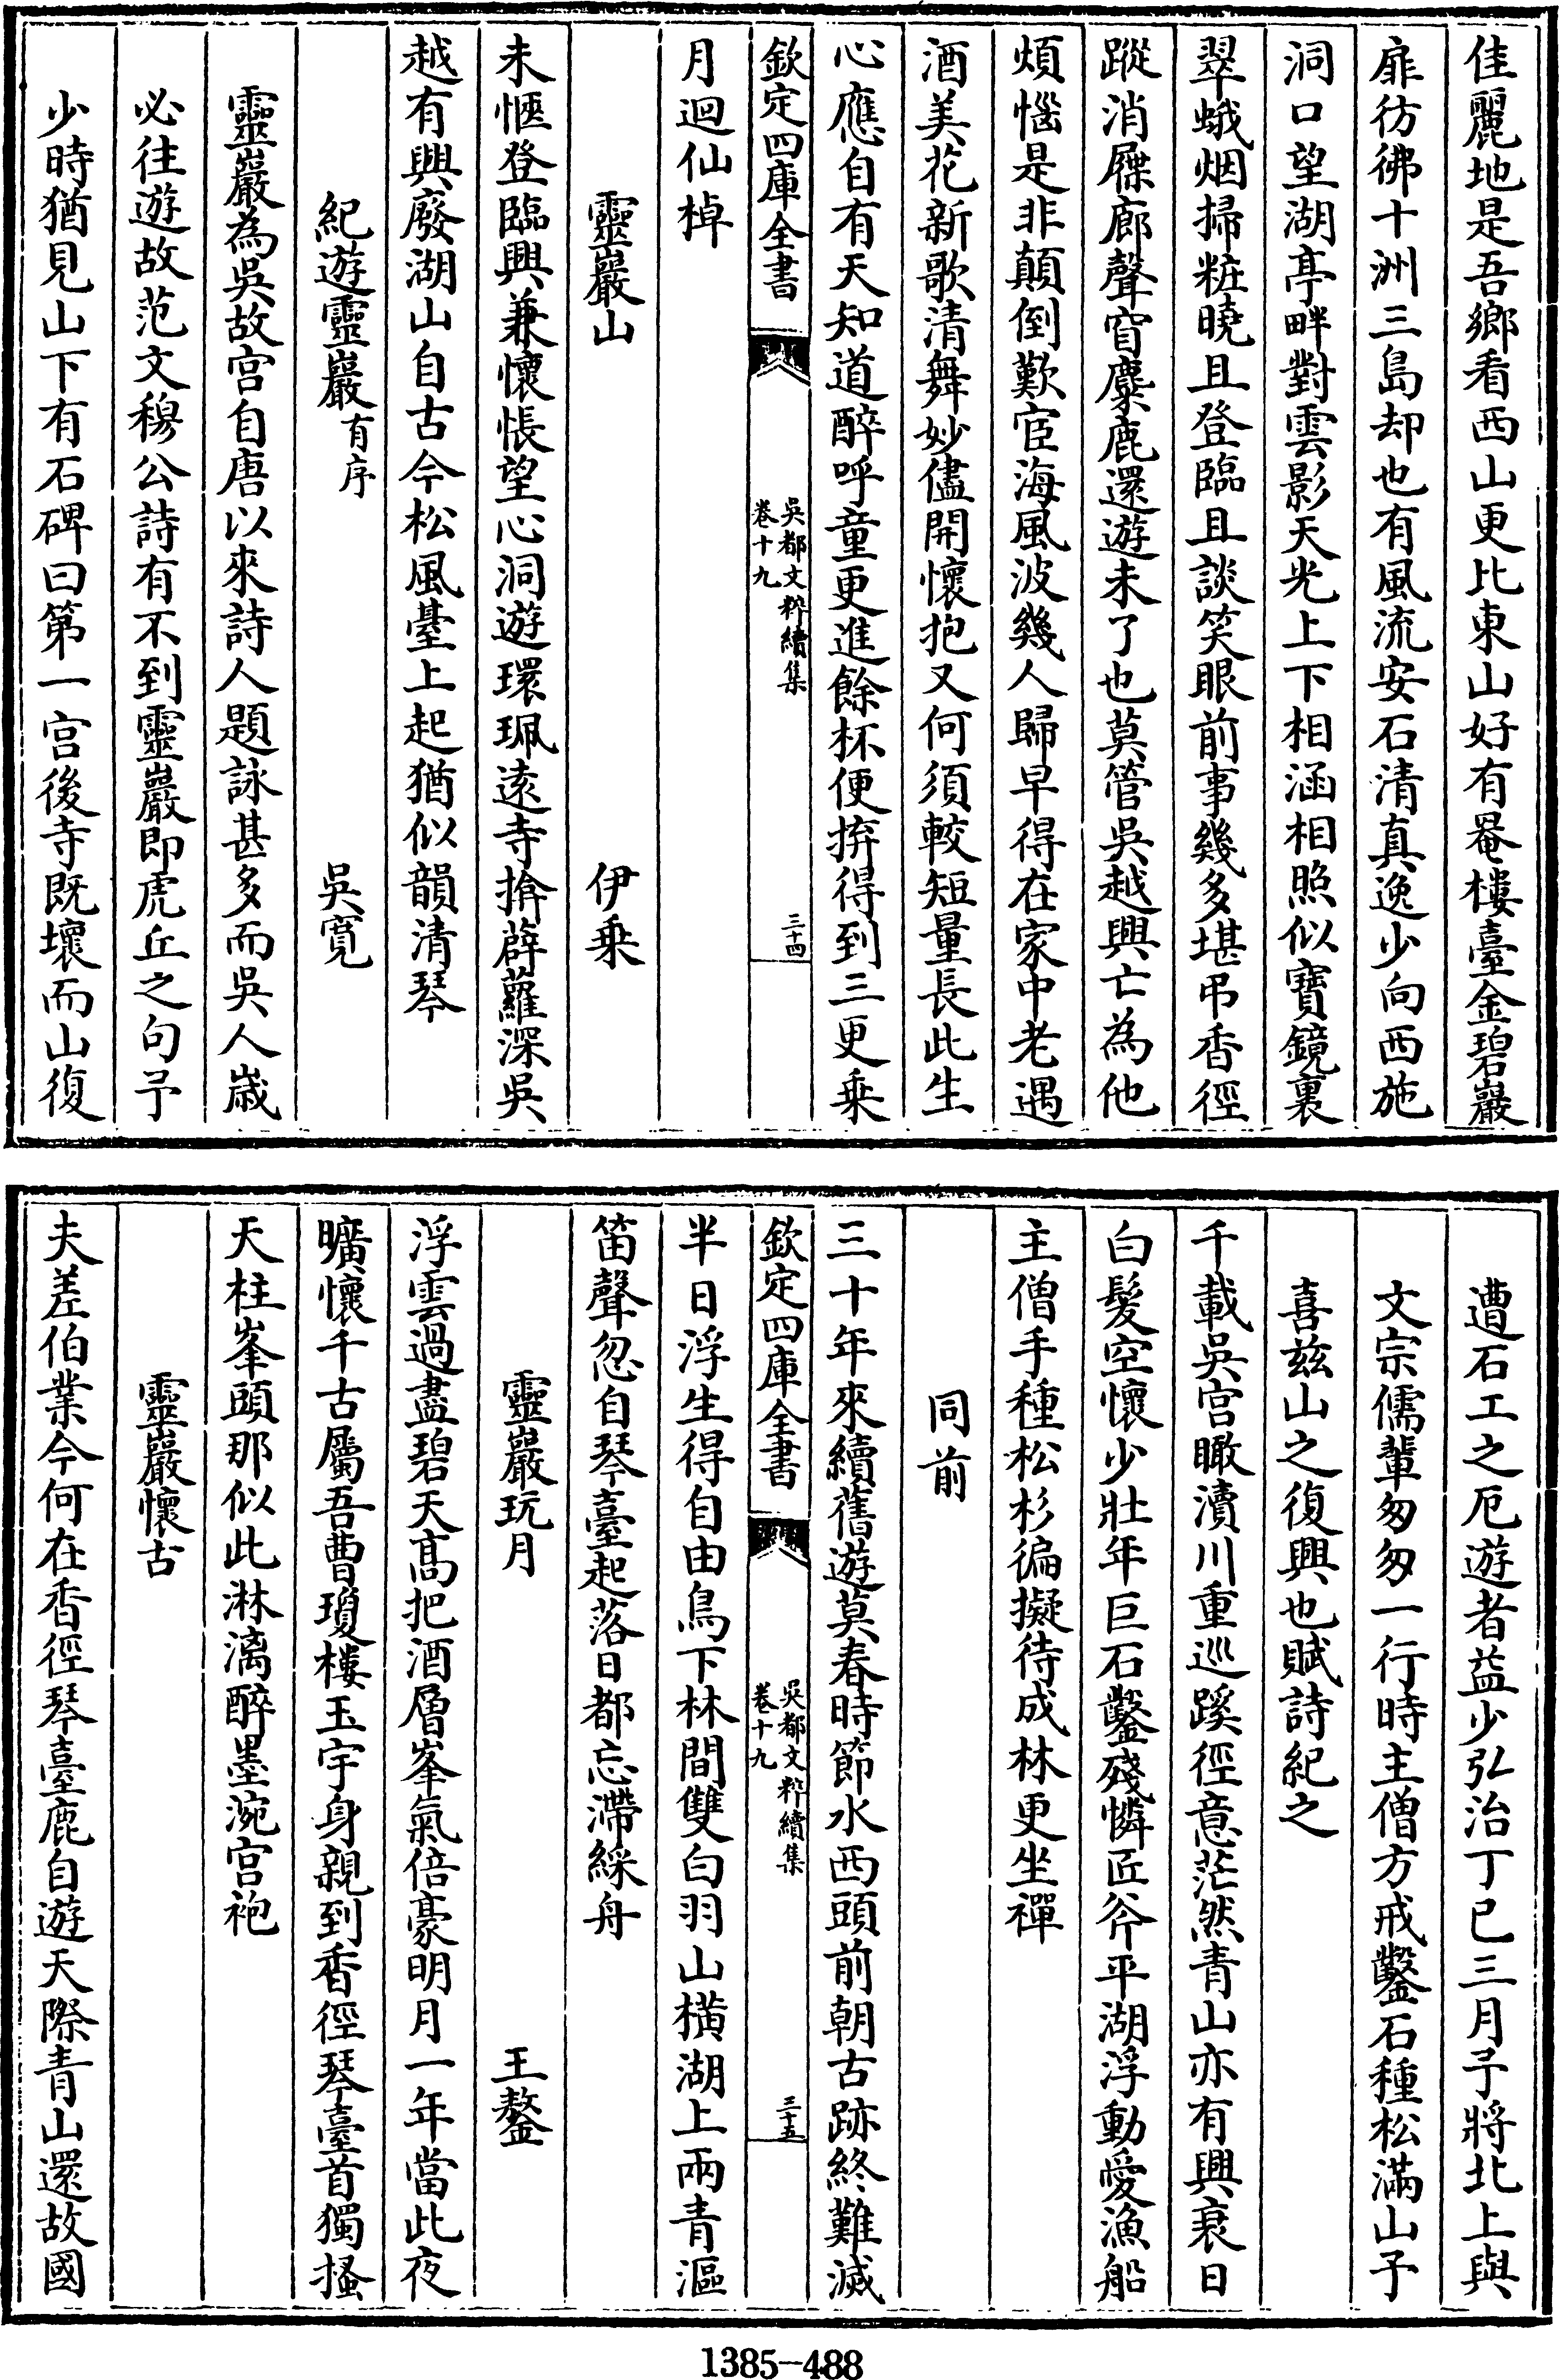 佳麗地是吾鄉看西山更比東山好有罨樓臺金碧巖
扉彷彿十洲三島却也有風流安石清真逸少向西施
洞口望湖亭畔對雲影天光上下相涵相照似寶鏡裏
翠蛾烟掃粧曉且登臨且談笑眼前事幾多堪弔香徑
蹤消屧廊聲窅麋鹿還遊未了也莫管吳越興亡為他
煩惱是非顛倒歎宦海風波幾人歸早得在家中老遇
酒美花新歌清舞妙儘開懷抱又何須較短量長此生
心應自有天知道醉呼童更進餘杯便拚得到三更乗
欽定四庫全書
吳都文粹續集
卷十九
三十四
月迴仙棹
靈巖山
伊乗
未愜登臨興兼懷悵望心洞遊環珮遠寺揜薜蘿深吳
越有興廢湖山自古今松風臺上起猶似韻清琴
紀遊靈巖有序
吳寛
靈巖為吳故宫自唐以來詩人題詠甚多而吳人歳
必往遊故范文穆公詩有不到靈巖即虎丘之句予
少時猶見山下有石碑曰第一宫後寺既壞而山復
遭石工之厄遊者益少弘治丁已三月予將北上與
文宗儒輩匆匆一行時主僧方戒鑿石種松滿山予
喜兹山之復興也賦詩紀之
千載吳宫瞰瀆川重巡蹊徑意茫然青山亦有興衰日
白髪空懷少壯年巨石鑿殘憐匠斧平湖浮動愛漁船
主僧手種松杉徧擬待成林更坐禪
同前
三十年來續舊遊莫春時節水西頭前朝古跡終難滅
欽定四庫全書
吳都文粹續集
卷十九
三十五
半日浮生得自由鳥下林間雙白羽山橫湖上兩青漚
笛聲忽自琴臺起落日都忘滯綵舟
靈巖玩月
王鏊
浮雲過盡碧天髙把酒層峯氣倍豪明月一年當此夜
曠懷千古屬吾曹瓊樓玉宇身親到香徑琴臺首獨搔
天柱峯頭那似此淋漓醉墨涴宫袍
靈巖懷古
夫差伯業今何在香徑琴臺鹿自遊天際青山還故國
1385-488